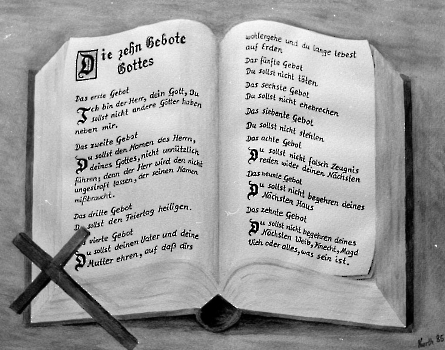 Die zehn Gebote
Gottes
Das erste Gebot
Ich bin der Herr, dein Gott, Du
sollst nicht andere Götter haben
neben mir.
Das zweite Gebot
Du sollst den Namen des Herrn,
deines Gottes, nicht unnützlich
führen; denn der Herr wird den nicht
ungestraft lassen, der seinen Namen
mißbraucht.
Das dritte Gebot
Du sollst den Feiertag heiligen.
vierte Gebot
Du sollst deinen Vater und deine
Mutter ehren, auf daß dirs
wohlergehe und du lange lebest
auf Erden
Das fünfte Gebot
Du sollst nicht töten
Das sechste Gebot
Du sollst nicht ehebrechen
Das siebente Gebot
Du sollst nicht stehlen
Das achte Gebot
Du sollst nicht falsch Zeugnis
reden wider deinen Nächsten
Das neunte Gebot
Du sollst nicht begehren deines
Nächsten Haus
Das zehnte Gebot
Du sollst nicht begehren deines
Nächsten Weib, Knecht, Magd
Vieh oder alles, was sein ist.